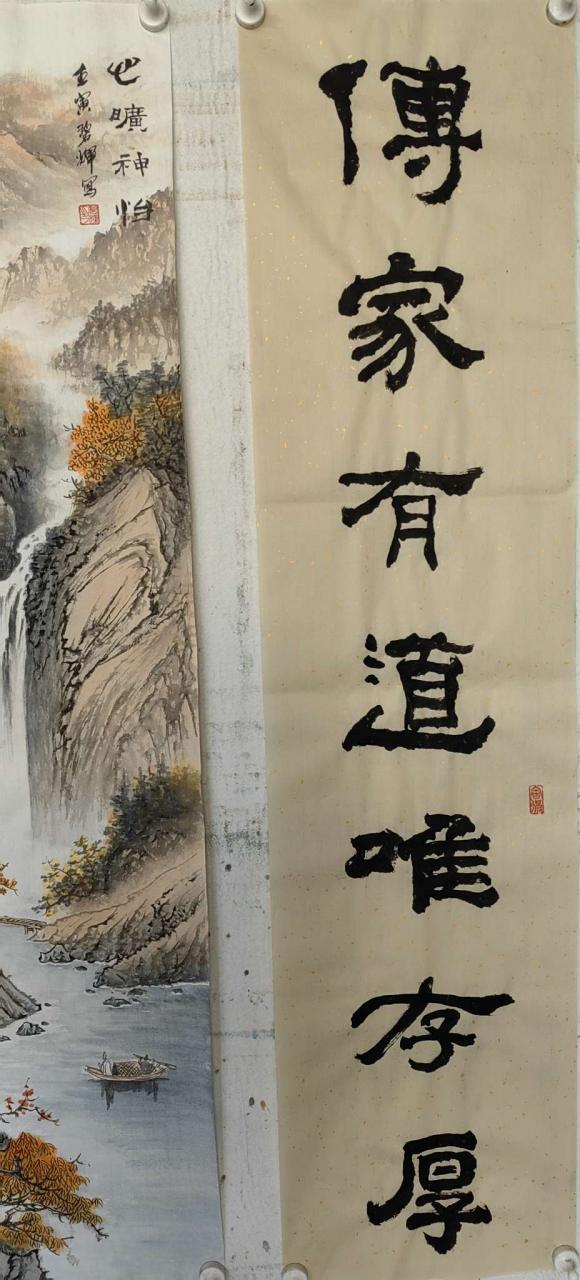 傳家有道唯存厚
心曠神怡
壬寅碧輝寫